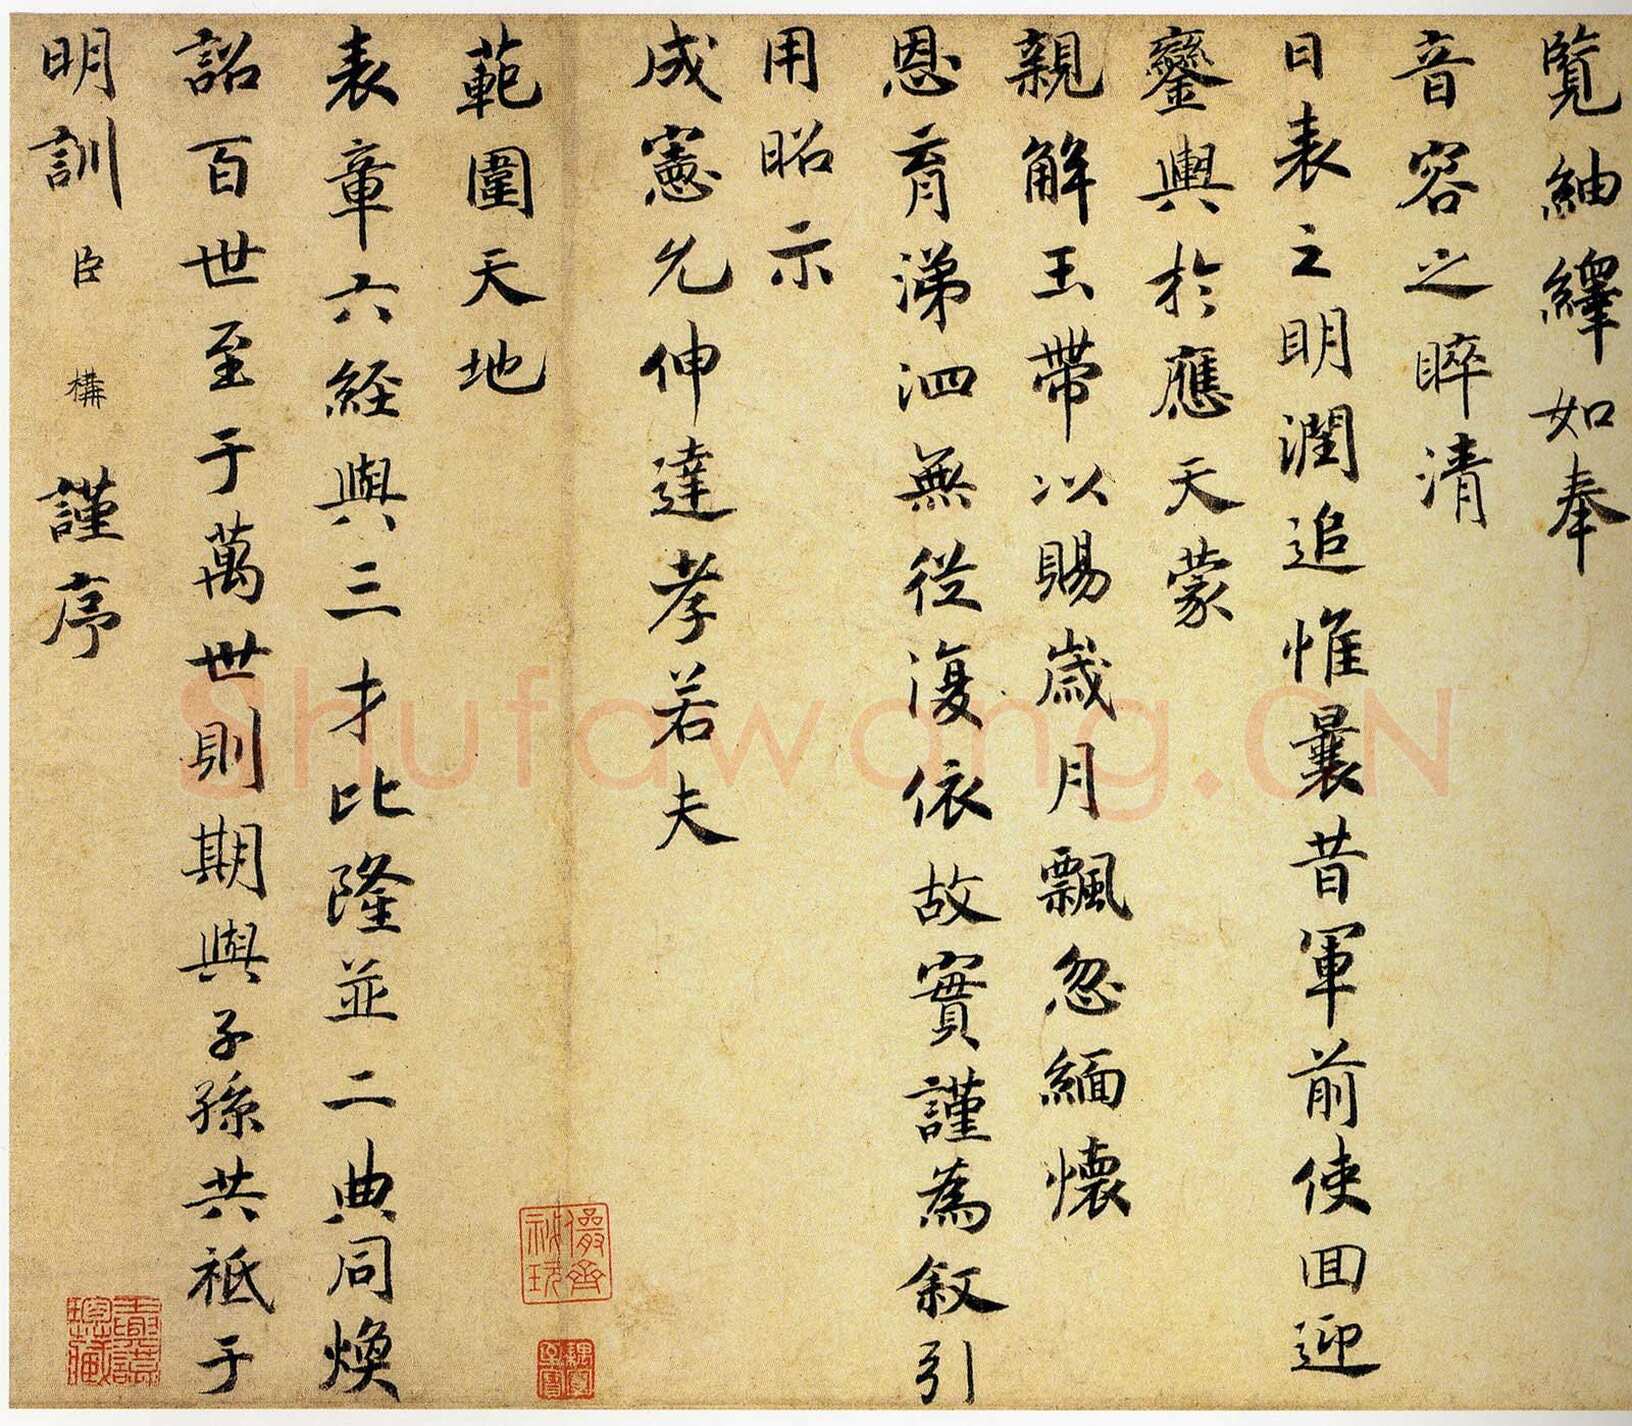 覽紬繹如奉
音容之睟清
日表之明潤追惟曩昔軍前使回迎
鑾輿於應天蒙
親解玉帶以賜歲月飄忽緬懷
恩育涕泗無從復依故實謹為敘引
用昭示
成憲允伸達孝若夫
範圍天地
表章六經與三才比隆並二典同煥
詔百世至于萬世則期與子孫共祗于
明訓臣構謹序
儼齋秘玩
Shufawang.CN